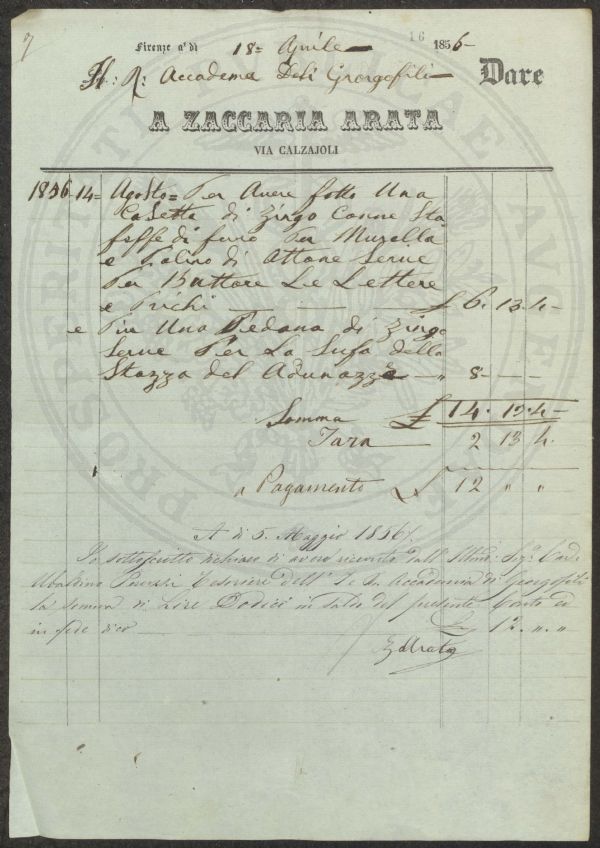 7
16
Firenze a' dì 18= Aprile 1856-
I: R: Accadema Deli Grorgofili Dare
A ZACCARIA ARATA
VIA CALZAJOLI
1856 14= Agosto= Per Avere fatto Una
Casetta di Zingo Conne Sta
foffe di ferro Per Muzella
e Polino di Attone Serve
Per Buttare Le Lettere
e Prichi £ 6. 13. 4-
e Piu Una Pedana di Zingo
Serve Per La Sufa della
Stazza del Adunazze " 8 - -
Somma £ 14. 13. 4-
Tara 2 13 4.
Pagamento £ 12 " "
A dì 5. Maggio 1856.
Io sottoscritto dichiaro di avere ricevuto dall' Illmo: Sigr. Cav:
Tesoriere dell' I. e R. Accademia di Georgofili
la somma di Lire Dodici in saldo del presente Conto ed
in fede dico £ 12. " "
Z Arata
PROSPERITATI PUBLICAE AUGENDAE